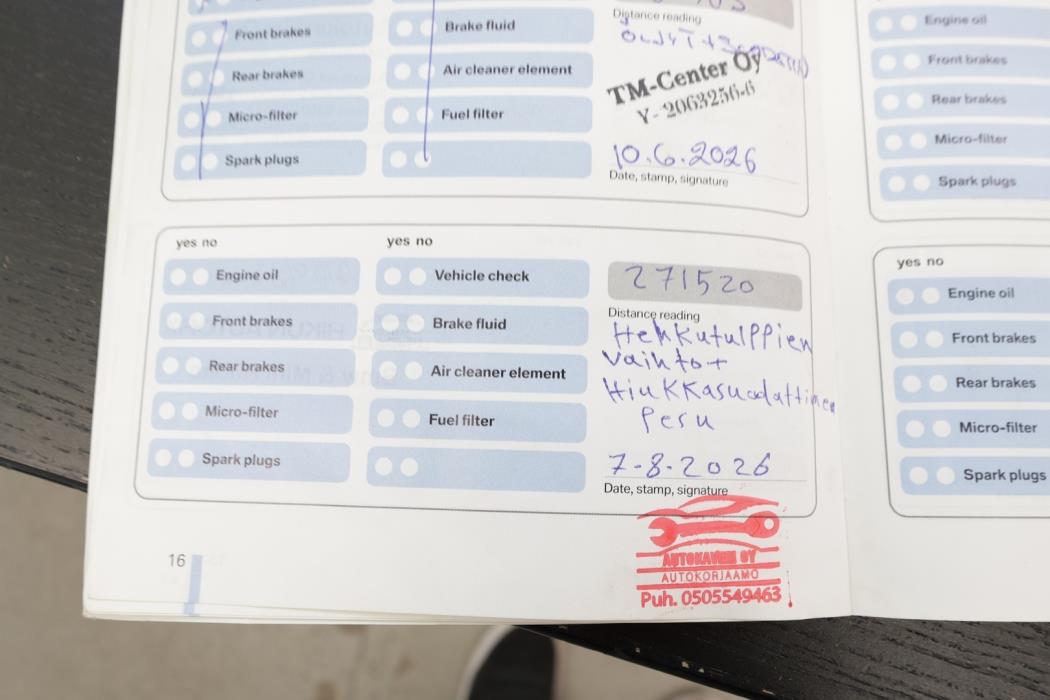 Front brakes
Rear brakes
Micro-filter
Spark plugs
Brake fluid
Air cleaner element
Fuel filter
Distance reading
TM-Center Oy
Y- 2063256-6
10.6.2026
Date, stamp, signature
yes no
Engine oil
Front brakes
Rear brakes
Micro-filter
Spark plugs
yes no
Vehicle check
Brake fluid
Air cleaner element
Fuel filter
271520
Distance reading
Hehkutulppien
vaihto+
Hiukkasuodattimen
Pesu
7-8-2026
Date, stamp, signature
AUTOKORJAAMO
Puh. 0505549463
16
Engine oil
Front brakes
Rear brakes
Micro-filter
Spark plugs
yes no
Engine oil
Front brakes
Rear brakes
Micro-filter
Spark plugs